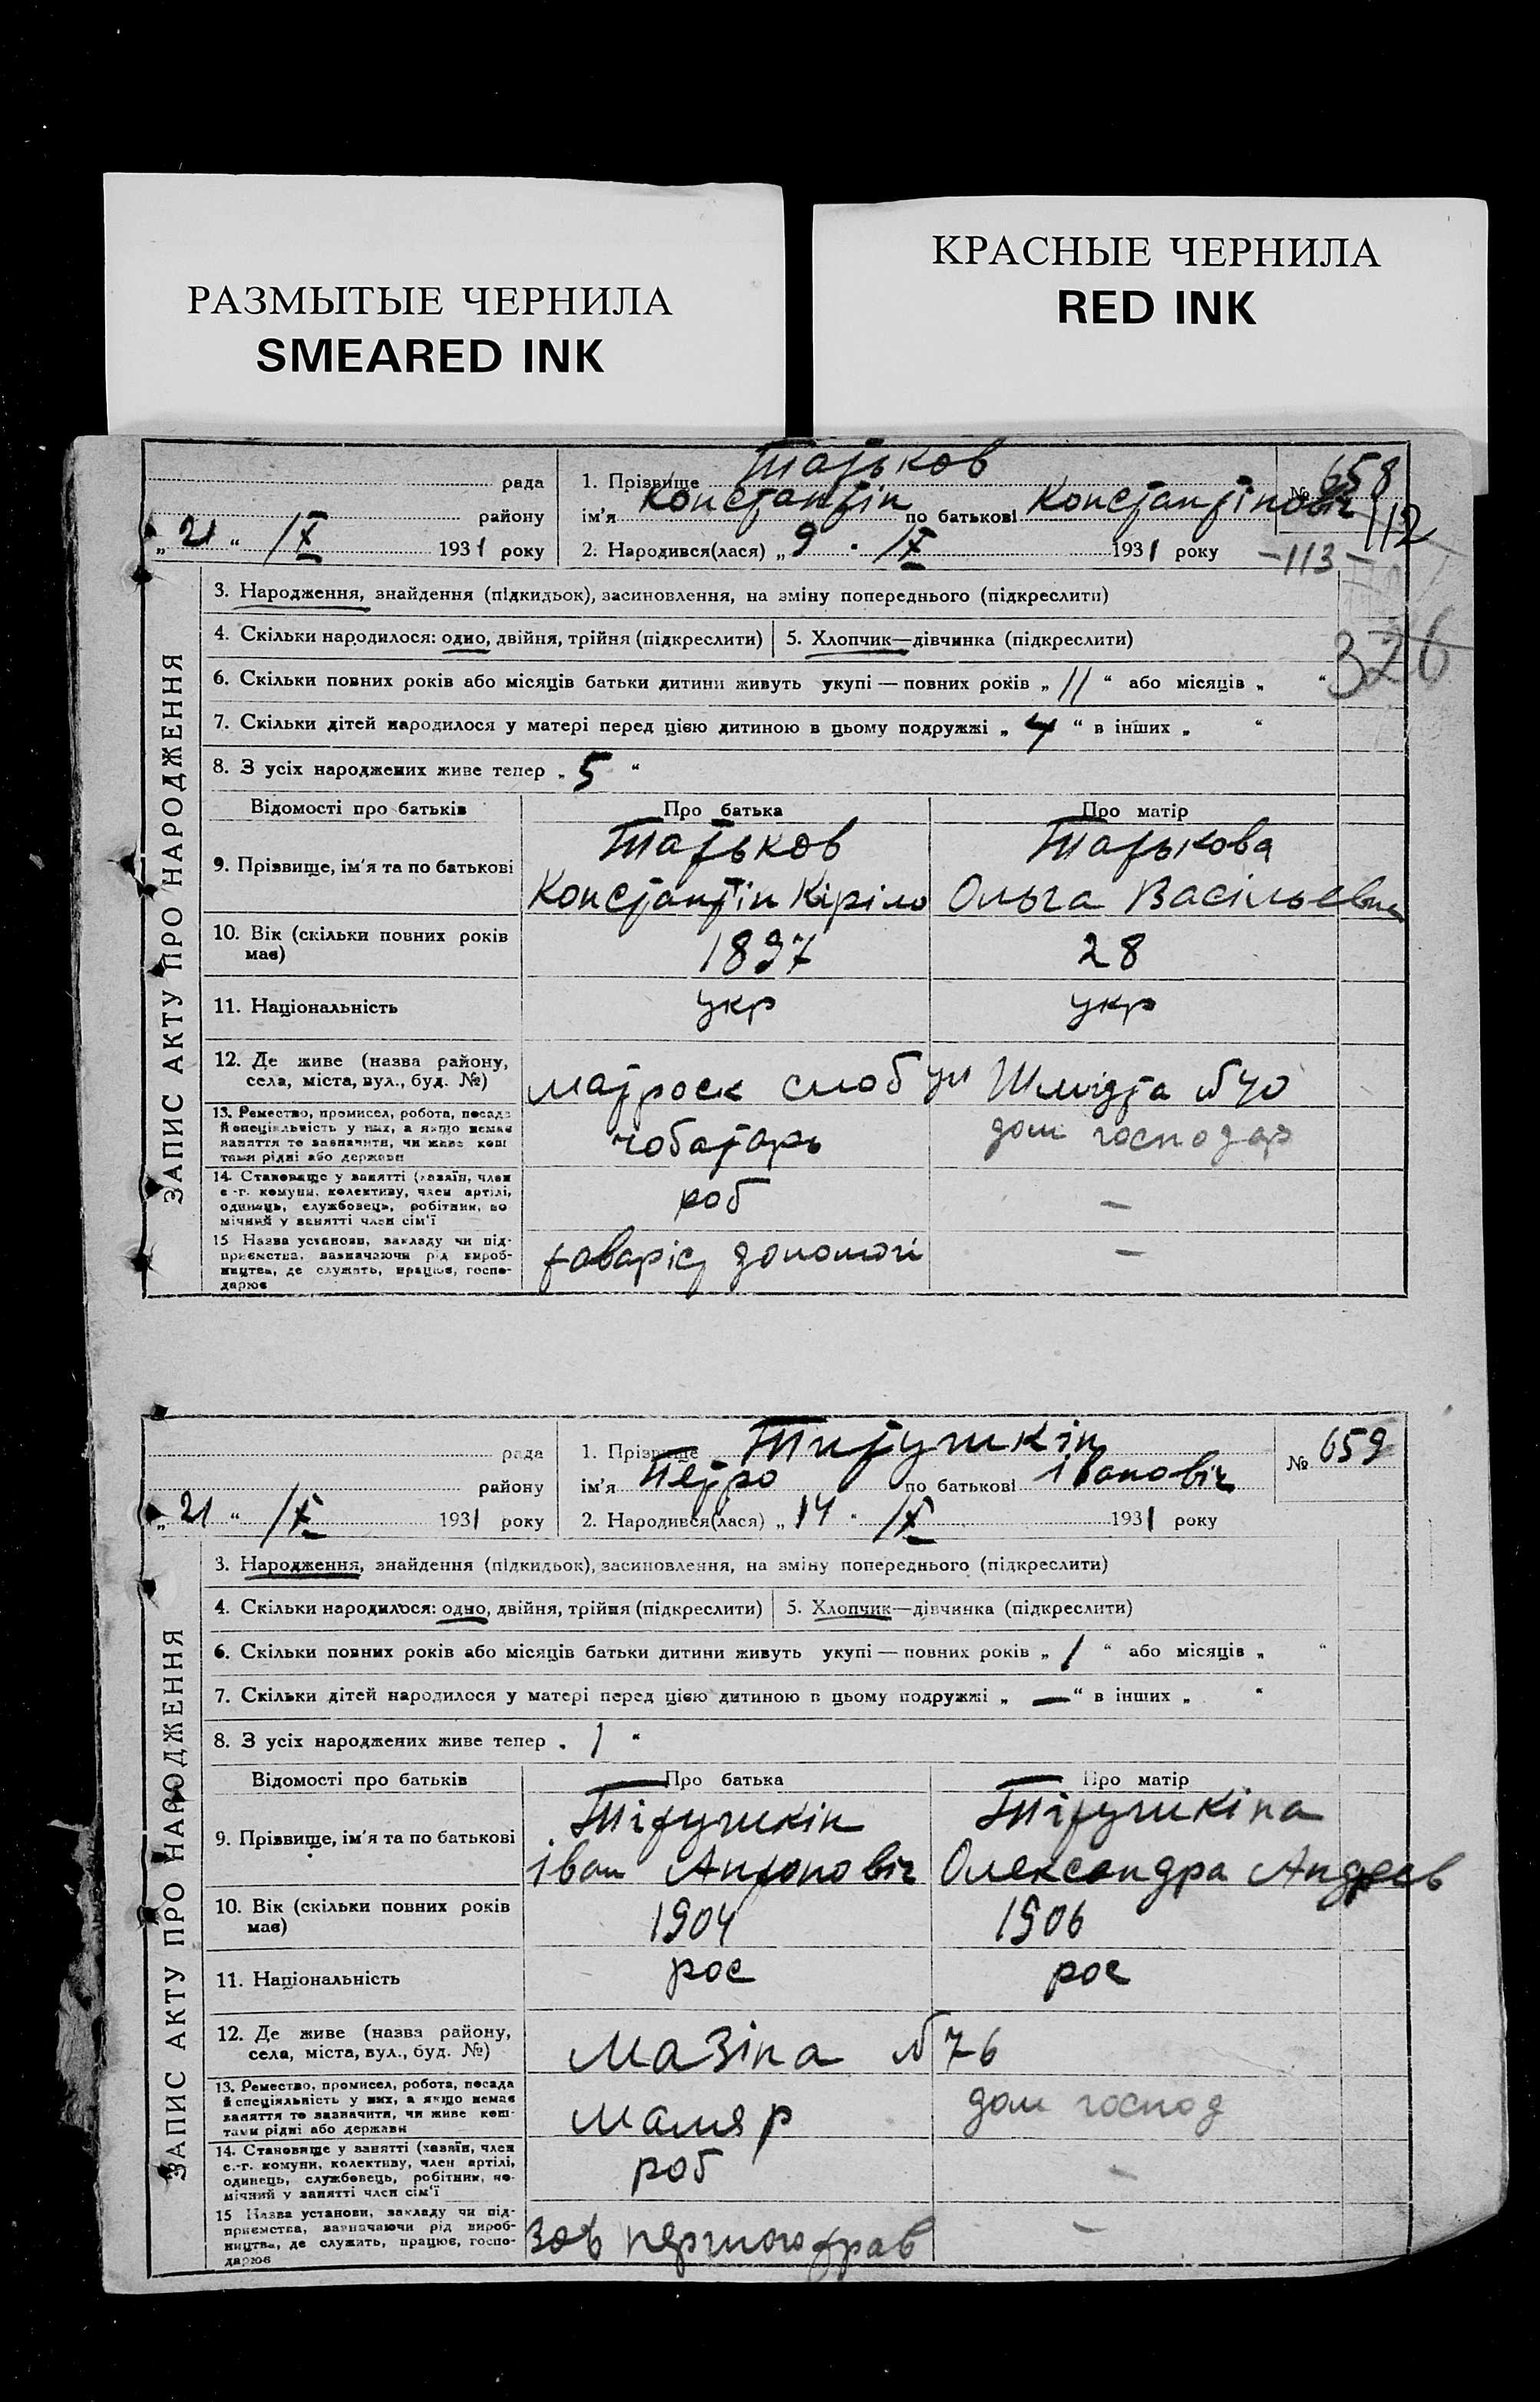 РАЗМЫТЫЕ ЧЕРНИЛА
SMEARED INK
КРАСНЫЕ ЧЕРНИЛА
RED INK
ЗАПИС АКТУ ПРО НАРОДЖЕННЯ
рада
району
„ 21 “ IX 1931 року
1. Прізвище Татьков
ім'я Константін по батькові Константінович
2. Народився(лася) „ 9 . IX 1931 року
№ 658
112
-113-
326
3. Народження, знайдення (підкидьок), засиновлення, на зміну попереднього (підкреслити)
4. Скільки народилося: одно, двійня, трійня (підкреслити) 5. Хлопчик—дівчинка (підкреслити)
6. Скільки повних років або місяців батьки дитини живуть укупі — повних років „ 11 “ або місяців „ “
7. Скільки дітей народилося у матері перед цією дитиною в цьому подружжі „ 4 “ в інших „ “
8. З усіх народжених живе тепер „ 5 “
Відомості про батьків Про батька Про матір
9. Прізвище, ім'я та по батькові
Татьков Татькова
Константін Кіріло Ольга Васільевна
10. Вік (скільки повних років має) 1897 28
11. Національність укр укр
12. Де живе (назва району, села, міста, вул., буд. №) матроск слоб ул Шмідта №40
13. Ремество, промисел, робота, посада й спеціяльність у них, а якщо немає заняття то зазначити, чи живе коштами рідні або держави чоботарь дом господар
14. Становище у занятті (хазяїн, член с.-г. комуни, колективу, член артілі, одинець, службовець, робітник, помічний у занятті член сім'ї роб —
15 Назва установи, закладу чи підприємства, зазначаючи рід виробництва, де служить, працює, господарює товаріст допомоги —
ЗАПИС АКТУ ПРО НАРОДЖЕННЯ
рада
району
„ 21 “ IX 1931 року
1. Прізвище Титушкін
ім'я Петро по батькові Іванович
2. Народився(лася) „ 14 . IX 1931 року
№ 659
3. Народження, знайдення (підкидьок), засиновлення, на зміну попереднього (підкреслити)
4. Скільки народилося: одно, двійня, трійня (підкреслити) 5. Хлопчик—дівчинка (підкреслити)
6. Скільки повних років або місяців батьки дитини живуть укупі — повних років „ 1 “ або місяців „ “
7. Скільки дітей народилося у матері перед цією дитиною в цьому подружжі „ — “ в інших „ “
8. З усіх народжених живе тепер „ 1 “
Відомості про батьків Про батька Про матір
9. Прізвище, ім'я та по батькові
Тітушкін Тітушкіна
Іван Антоновіч Олександра Андреев
10. Вік (скільки повних років має) 1904 1906
11. Національність рос рос
12. Де живе (назва району, села, міста, вул., буд. №) Мазіна №76
13. Ремество, промисел, робота, посада й спеціяльність у них, а якщо немає заняття то зазначити, чи живе коштами рідні або держави маляр дом господ
14. Становище у занятті (хазяїн, член с.-г. комуни, колективу, член артілі, одинець, службовець, робітник, помічний у занятті член сім'ї роб —
15 Назва установи, закладу чи підприємства, зазначаючи рід виробництва, де служить, працює, господарює Зав першого трав —